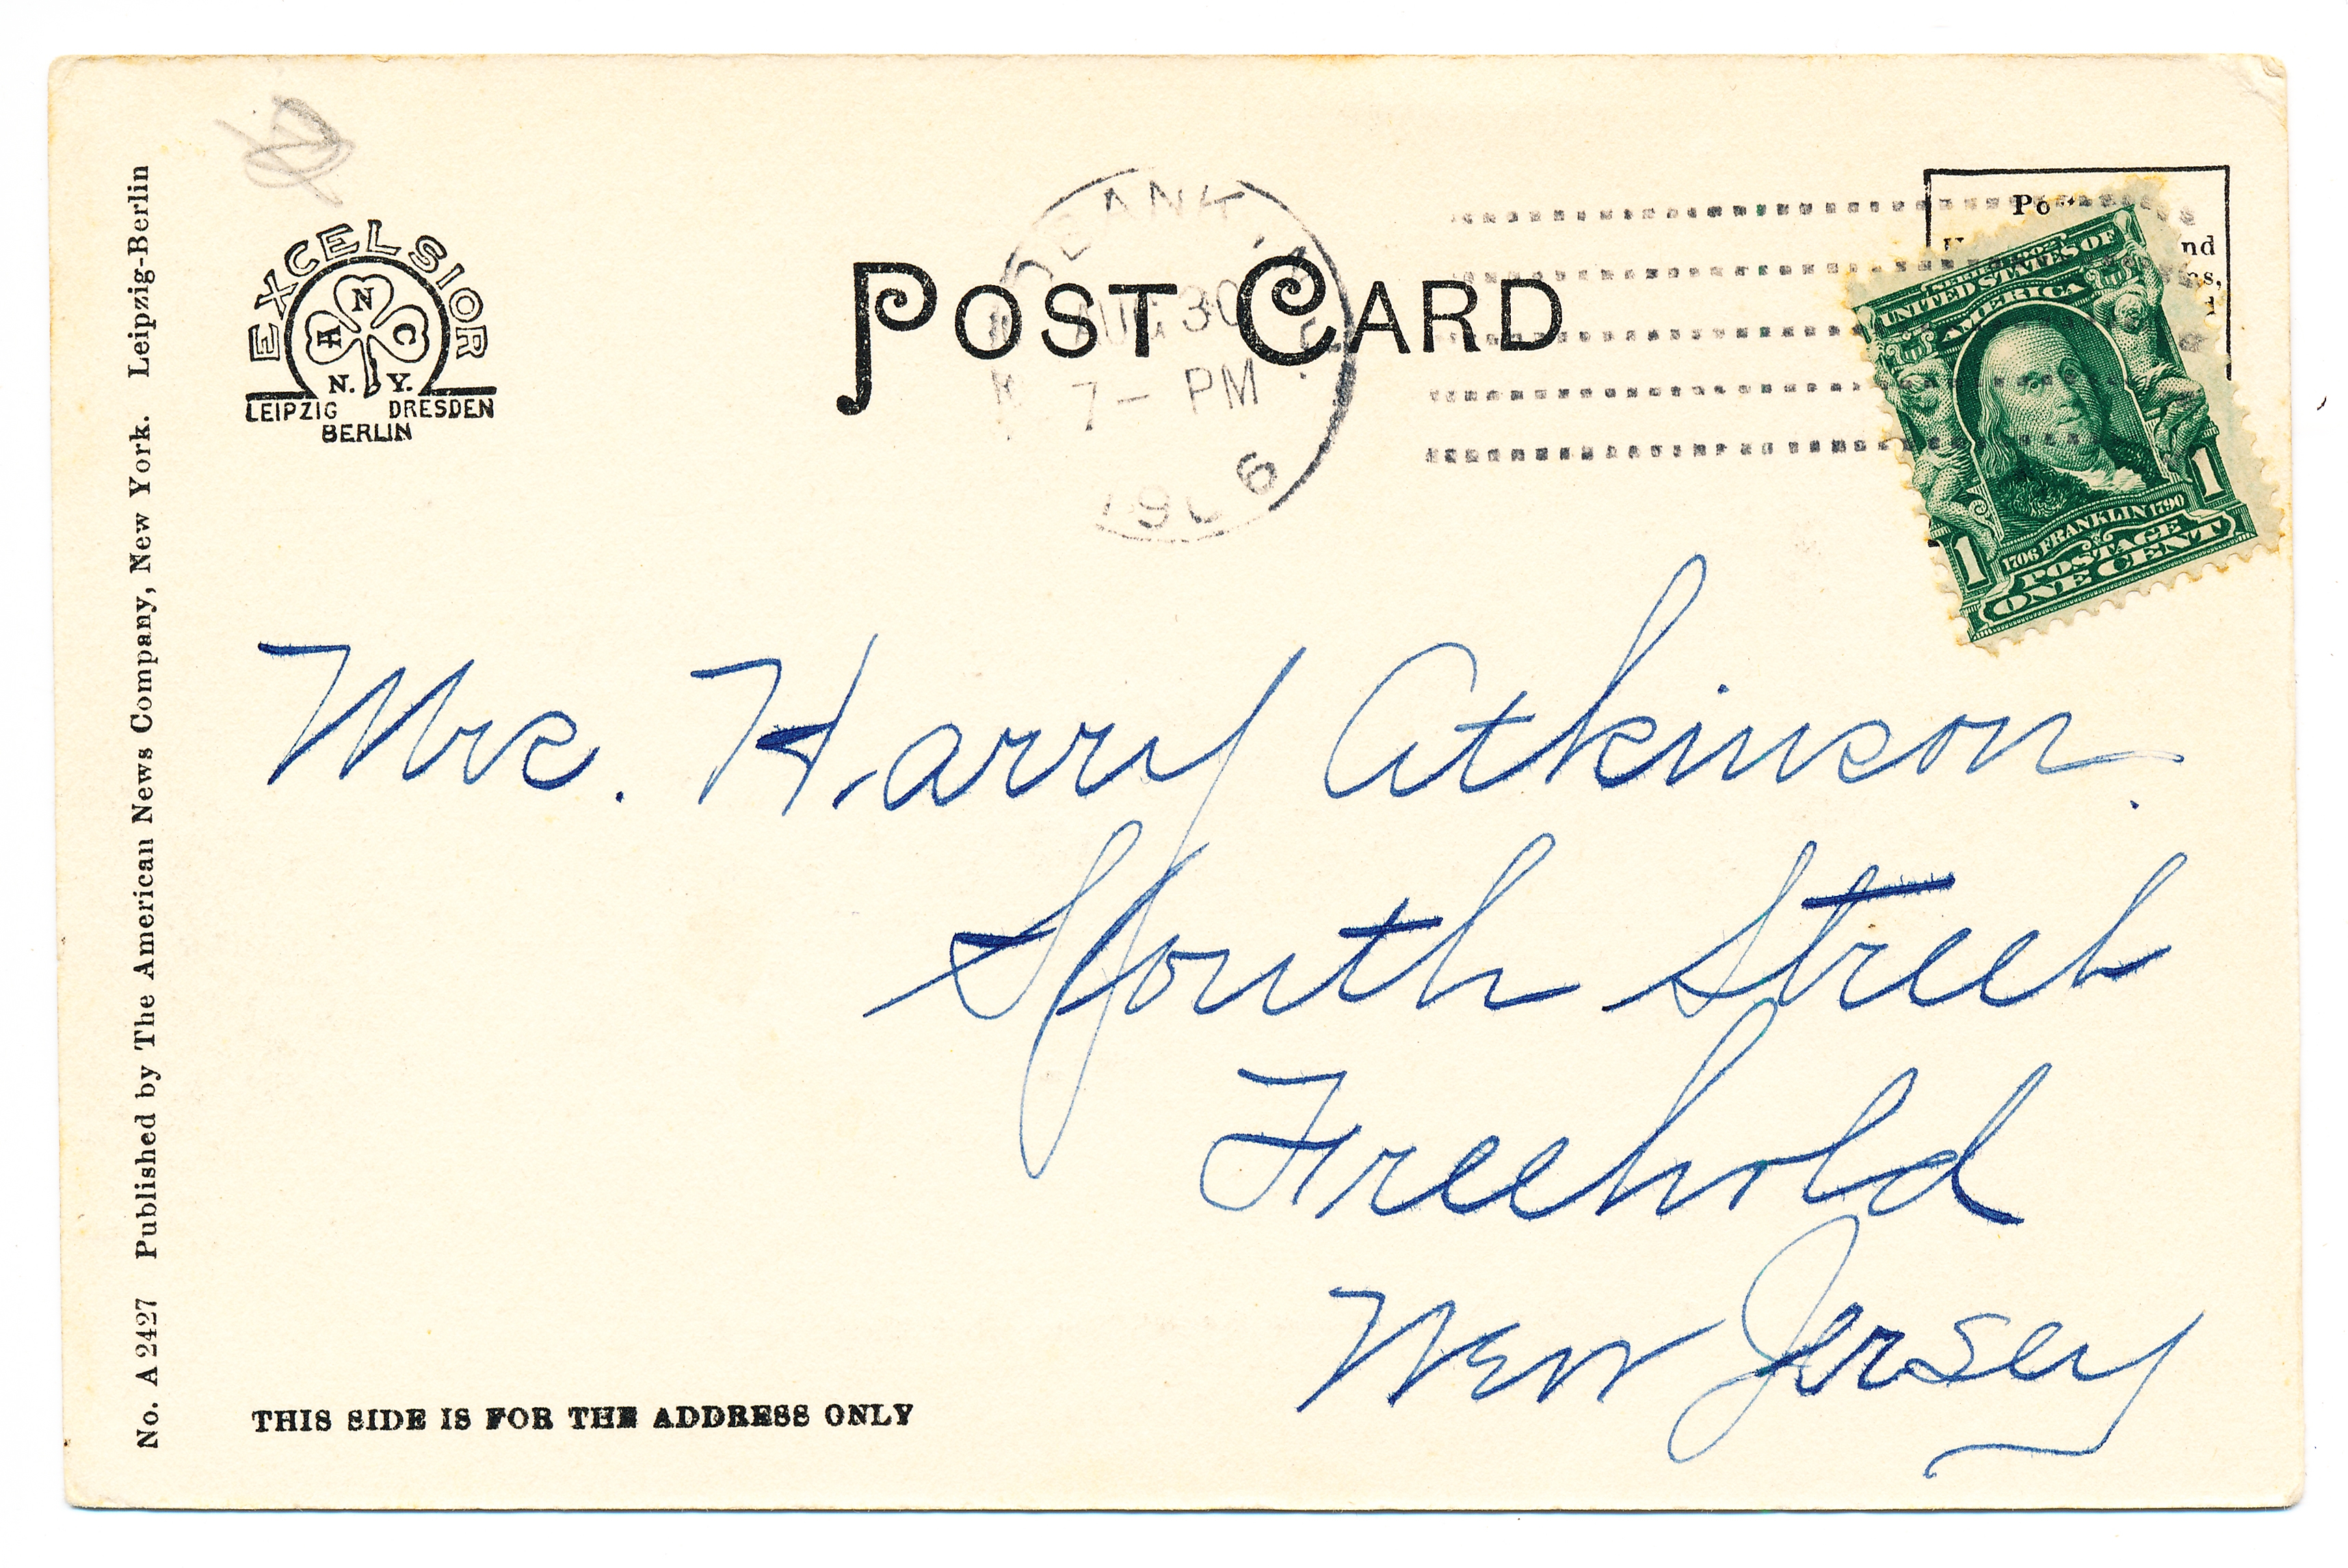 No. A 2427 Published by The American News Company, New York. Leipzig-Berlin
EXCELSIOR
A N C
N. Y.
LEIPZIG DRESDEN
BERLIN
POST CARD
BANK
AUG 30
7 - PM
1906
nd
SERIES 1902
UNITED STATES OF
AMERICA
1706 FRANKLIN 1790
1 POSTAGE 1
ONE CENT
Mrs. Harry Atkinson.
South Street
Freehold
New Jersey
THIS SIDE IS FOR THE ADDRESS ONLY